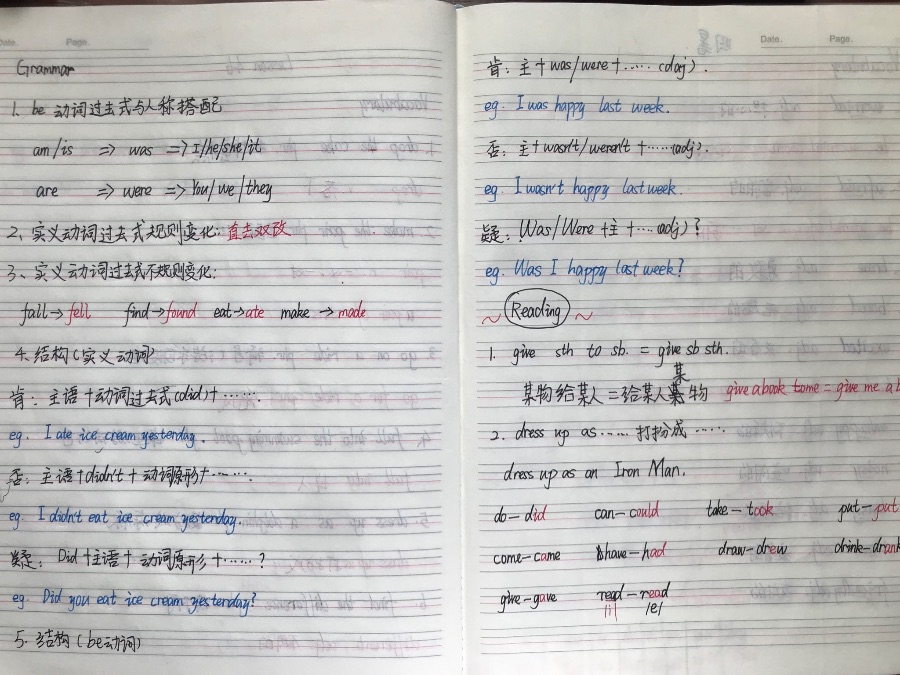 Date.    Page.
Grammar
1. be 动词过去式与人称搭配
am/is => was => I/he/she/it
are => were => You/we/they
2、实义动词过去式规则变化:直去双改
3、实义动词过去式不规则变化:
fall→fell    find→found    eat→ate    make→made
4. 结构(实义动词)
肯: 主语+动词过去式(did)+…….
eg. I ate ice cream yesterday.
否: 主语+didn't+动词原形+…….
eg. I didn't eat ice cream yesterday.
疑: Did+主语+动词原形+……?
eg. Did you eat ice cream yesterday?
5. 结构(be动词)
Date.    Page.
肯: 主+was/were+……(adj).
eg. I was happy last week.
否: 主+wasn't/weren't+……(adj).
eg. I wasn't happy last week.
疑: Was/Were+主+……(adj)?
eg. Was I happy last week?
~ Reading ~
1. give sth to sb. = give sb sth.
某
某物给某人=给某人物    give a book to me = give me a b
2. dress up as …… 打扮成 ……
dress up as an Iron Man.
do-did    can-could    take-took    put-put
come-came    have-had    draw-drew    drink-drank
give-gave    read-read
/i/    /e/